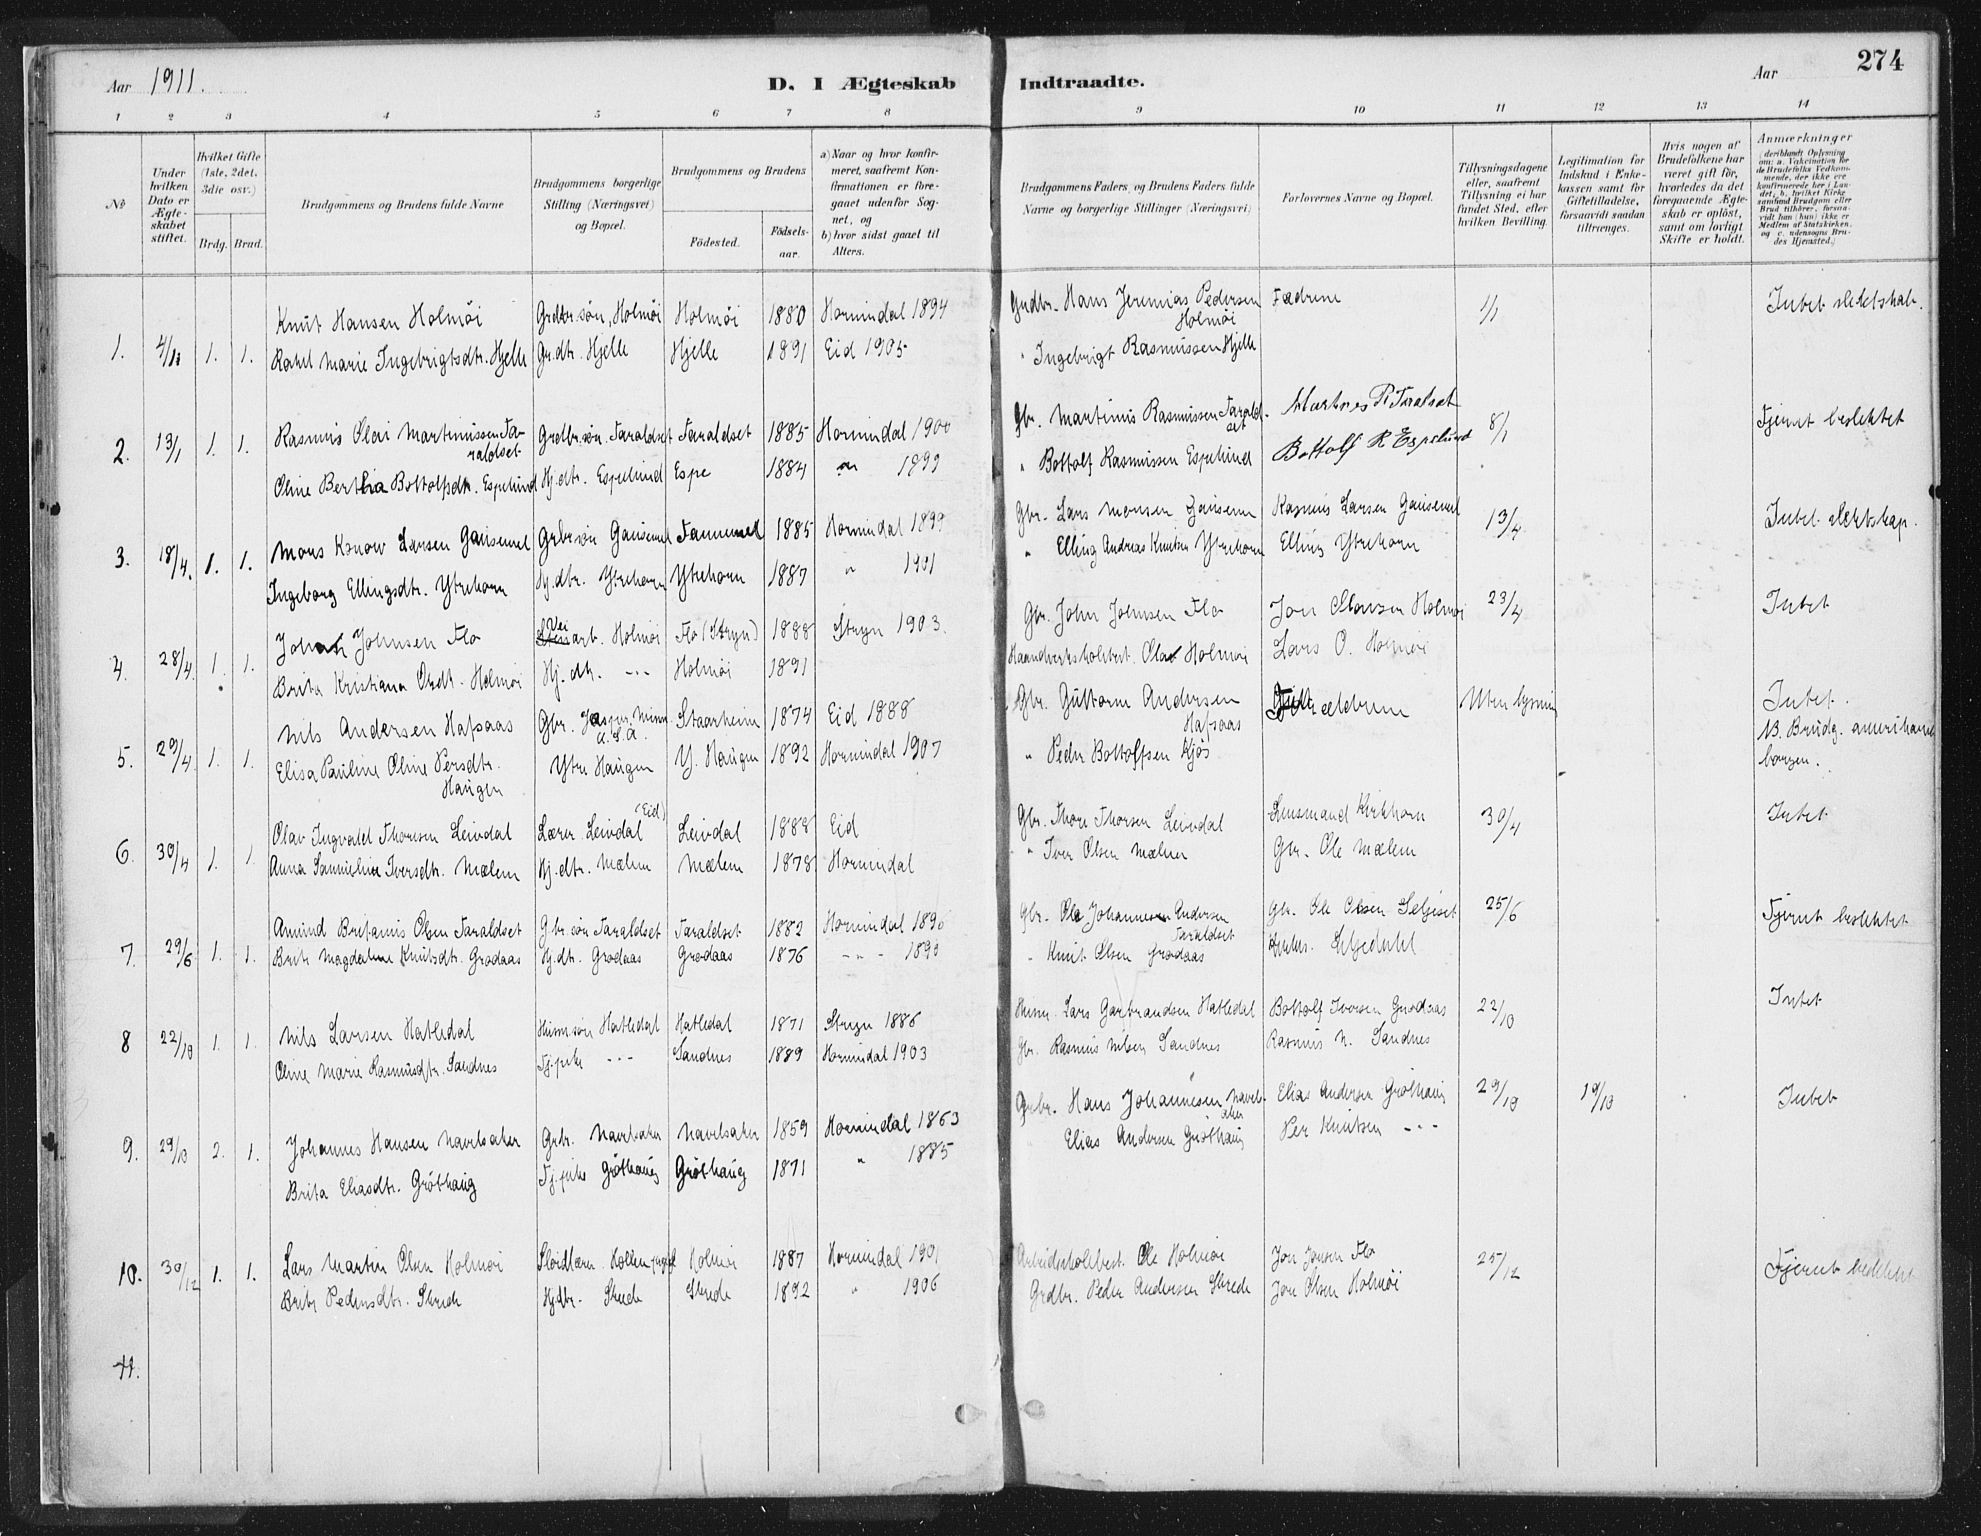 Aar 1911.
D. I Ægteskab Indtraadte.
Aar
274
1 2 3 4 5 6 7 8 9 10 11 12 13 14
No
Under hvilken Dato er Ægteskabet stiftet.
Hvilket Gifte (1ste, 2det, 3die osv.)
Brdg. Brud.
Brudgommens og Brudens fulde Navne
Brudgommens borgerlige Stilling (Næringsvei) og Bopæl.
Brudgommens og Brudens
Födested.
Födselsaar.
a) Naar og hvor konfirmeret, saafremt Konfirmationen er foregaaet udenfor Sognet, og
b) hvor sidst gaaet til Alters.
Brudgommens Faders, og Brudens Faders fulde Navne og borgerlige Stillinger (Næringsvei)
Forlovernes Navne og Bopæl.
Tillysningsdagene eller, saafremt Tillysning ei har fundet Sted, efter hvilken Bevilling.
Legitimation for Indskud i Enkekassen samt for Giftetilladelse, forsaavidt saadan tiltrænges.
Hvis nogen af Brudefolkene har været gift för, hvorledes da det foregaaende Ægteskab er oplöst, samt om lovligt Skifte er holdt.
Anmærkninger
(deriblandt Oplysning om: a. Vakcination for de Brudefolks Vedkommende, der ikke ere konfirmerede her i Landet, b. hvilket Kirkesamfund Brudgom eller Brud tilhörer, forsaavidt han (hun) ikke er Medlem af Statskirken, og c. udensogns Brudes Hjemsted.)
1. 4/1 1. 1. Knut Hansen Holmöi Grdbr.sön, Holmöi Holmöi 1880 Hornindal 1894 Grdbr. Hans Jeremias Pedersen Holmöi Fædrene 1/1 Intet slektskab.
Rakel Marie Ingebrigtsdtr. Hjelle Gr.dtr. Hjelle Hjelle 1891 Eid 1905 " Ingebrigt Rasmussen Hjelle
2. 13/1 1. 1. Rasmus Olai Martinussen Faraldset Grdbr.sön Faraldset Faraldset 1885 Hornindal 1900 Gbr. Martinus Rasmussen Faraldset Martines R Faralset 8/1 Fjernt beslektet
Oline Bertha Bottolfsdtr. Espelund Hj.dtr. Espelund Espe 1884 " 1899 " Bottolf Rasmussen Espelund Bottolf R Espelund
3. 18/4. 1. 1. Mons Know Larsen Gausemel Grbr.sön Gausemel 1885 Hornindal 1899 Gbr. Lars Monsen Rasmus Larsen Gausemel 13/4 Intet slektskap.
Ingeborg Ellingsdtr. Ytrehorn Hj.dtr. Ytrehorn Ytrehorn 1887 " 1901 " Elling Andreas Knutsen Ytrehorn Elling Ytrehorn
4. 28/4. 1. 1. Johan Johnsen Flo Veiarb. Holmöi Flo (Stryn) 1888 Stryn 1903. Gbr. John Johnsen Flo Jon Holmöi 23/4 Intet
Brita Kristiana Olsdtr. Holmöi Hj.dtr. --- Holmöi 1891 Ola Holmöi Lars O. Holmöi
5. 29/4. 1. 1. Nils Andersen Hafsaas Gbr. Jasper, Minn. U.S.A. Staarheim 1874 Eid 1888 Gbr. Guttorm Andersen Hafsaas Uten lysning Intet.
Elisa Pauline Oline Persdtr. Haugen Ytre Haugen Y. Haugen 1892 Hornindal 1907 " Peder Bottolfsen Kjös NB. Brudg. amerikansk borger.
6. 30/4 1. 1. Olav Ingvald Thoresen Leivdal Lærer Leivdal (Eid) Leivdal 1888 Eid Gbr. Thore Thorsen Leivdal Lensmand Kirkhorn 30/4 Intet
Anna Samueline Iversdtr. Mælem Hj.dtr. Mælem Mælem 1878 Hornindal " Iver Olsen Mælem Gbr. Ole Mælem
7. 29/6 1. 1. Amund Britanus Olsen Faraldset Gbr.sön Faraldset Faraldset 1882 Hornindal Gbr. Ole Johannes Andersen Faraldset Gbr. Ole Olsen 25/6 Fjernt beslektet
Brite Magdalene Knutsdtr. Grodaas Hj.dtr. Grodaas Grodaas 1876 --- 1890 " Knut Olsen Grodaas
8 22/10 1. 1. Nils Larsen Hatledal Husm.sön Hatledal Hatledal 1871 Stryn 1886 Husm. Lars Garbrandsen Hatledal Bottolf Iversen Grodaas 22/10 Intet
Oline Marie Rasmusdtr. Sandnes Tj.pike --- Sandnes 1889 Hornindal 1903 Gbr. Rasmus Nilsen Sandnes Rasmus N. Sandnes
9. 29/10 2. 1. Johannes Hansen Navelsaker Grbr. Navelsaker Navelsaker 1859 Hornindal 1863 Grbr. Hans Johannesen Navelsaker Elias Andersen Gröthaug 29/10 19/10 Intet
Brita Eliasdtr. Gröthaug Tj.pike Gröthaug Gröthaug 1871 " 1885 Elias Andersen Gröthaug Per Knutsen ---
10. 30/12 1. 1. Lars Martin Olsen Holmöi Slöidlærer Holmöi 1887 Hornindal 1901 Ole Holmöi Jon Jonsen Flo 25/12 Fjernt beslektet
Brite Pedersdtr. Skrede Hj.dtr. Skrede Skrede 1892 " 1906 Grdbr. Peder Andersen Skrede Jon Olsen Holmöi
11.